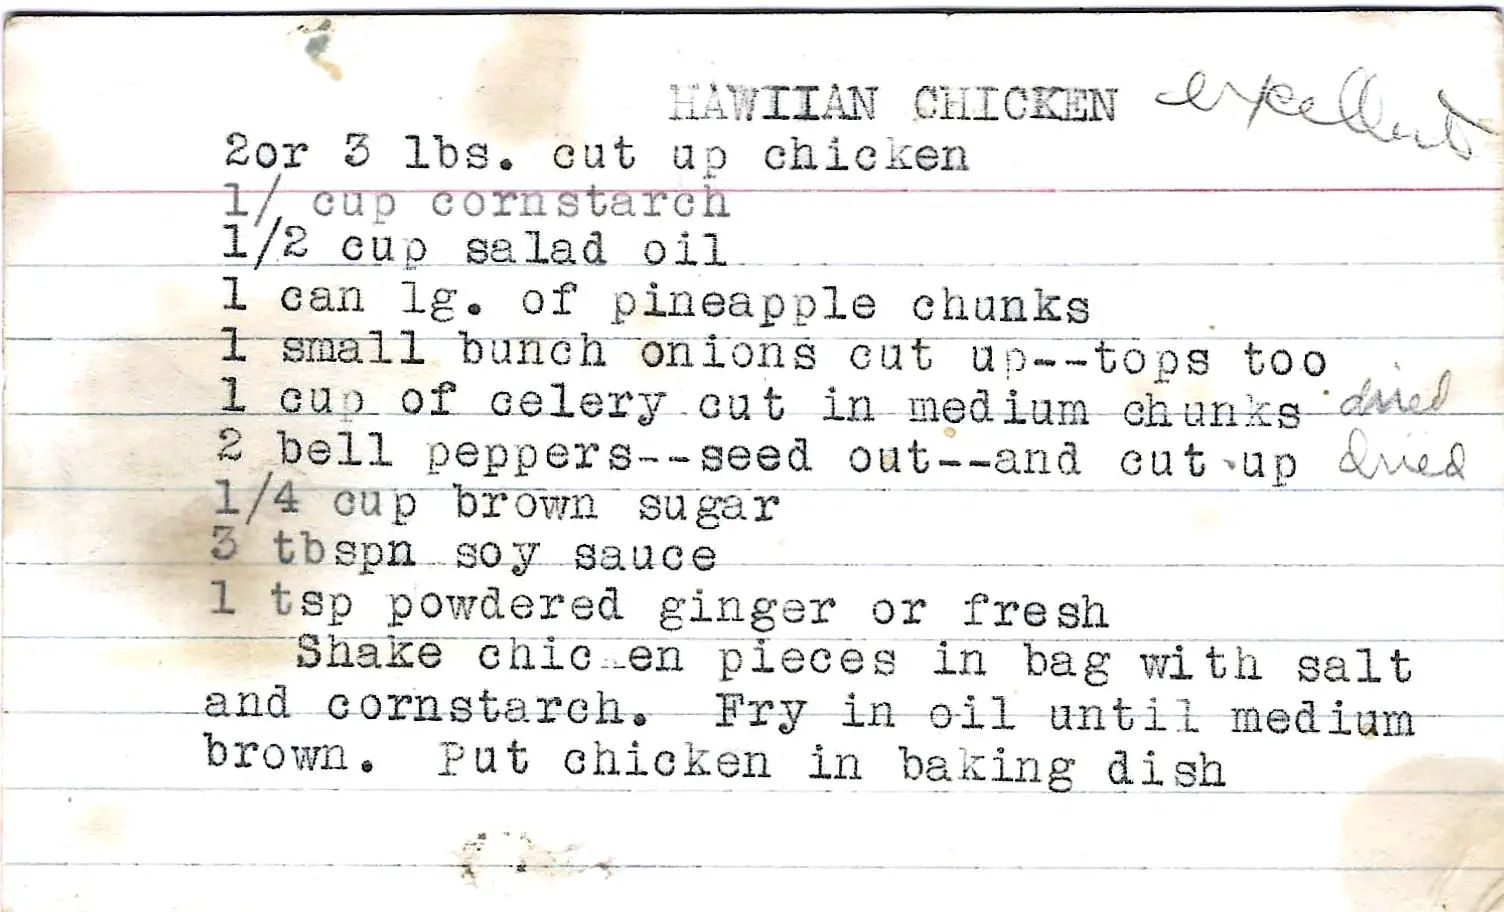 HAWIIAN CHICKEN excellent
2or 3 lbs. cut up chicken
1/ cup cornstarch
1/2 cup salad oil
1 can lg. of pineapple chunks
1 small bunch onions cut up--tops too
1 cup of celery cut in medium chunks dried
2 bell peppers--seed out--and cut up dried
1/4 cup brown sugar
3 tbspn soy sauce
1 tsp powdered ginger or fresh
Shake chic en pieces in bag with salt
and cornstarch. Fry in oil until medium
brown. Put chicken in baking dish